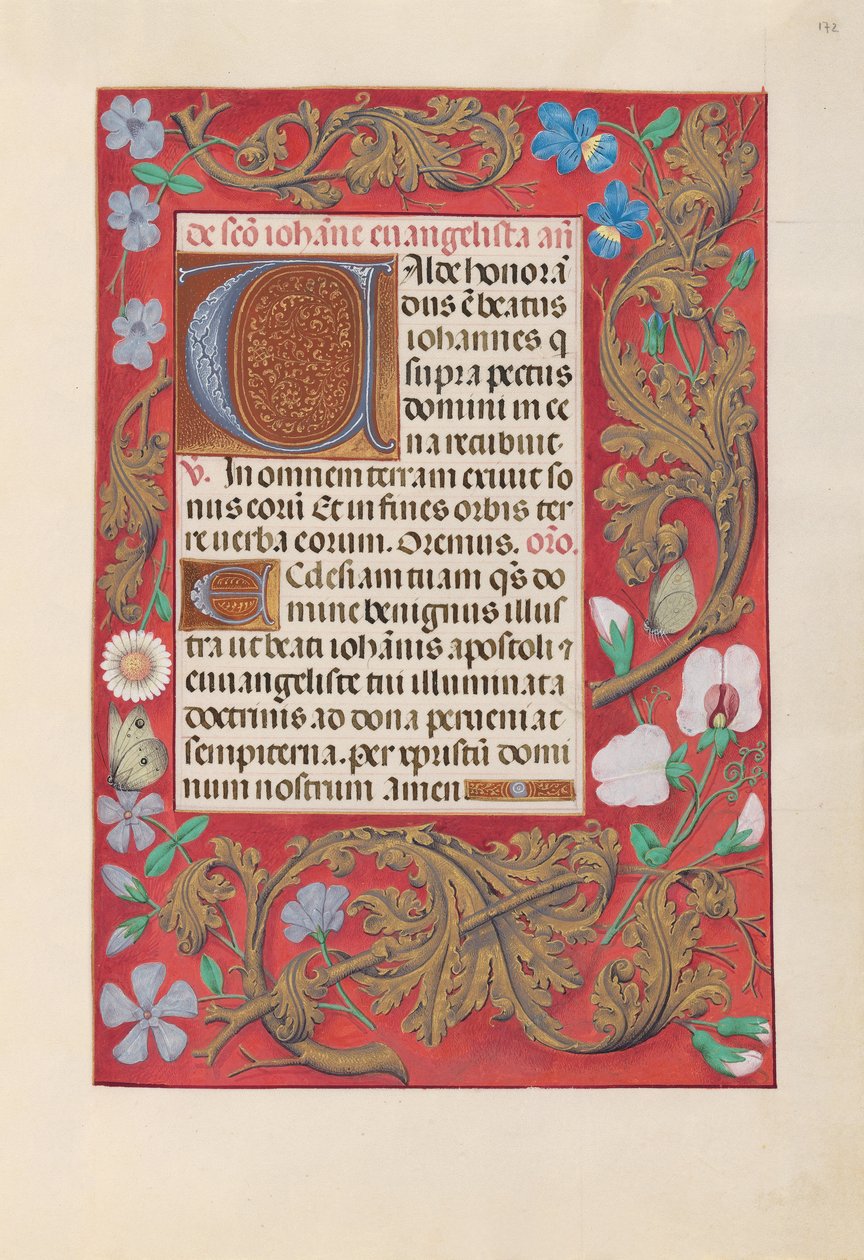 172
de scō iohāne euangelista añ
Valde honorā
dus ē beatus
iohannes q
supra pectus
domini in ce
na recubuit.
V. In omnem terram exiuit so
nus eorū Et in fines orbis ter
re uerba eorum. Oremus. orō.
Ecclesiam tuam qs do
mine benignus illus
tra ut beati iohānis apostoli ⁊
euuangeliste tui illuminata
doctrinis ad dona perueniat
sempiterna. per xpristū domi
num nostrum Amen